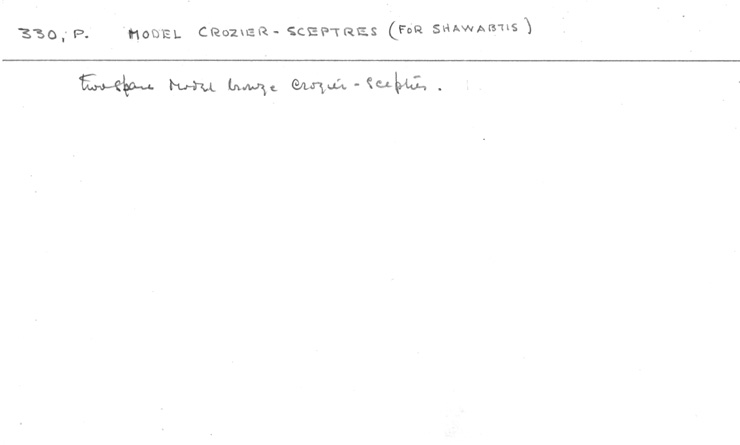 330, P. MODEL CROZIER-SCEPTRES (FOR SHAWABTIS)
Two spare model bronze crozier-sceptres.